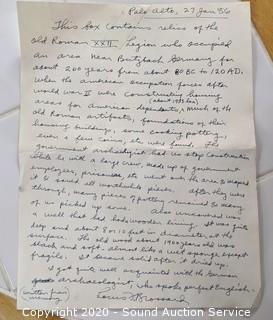 Palo Alto, 27 Jan 86
This box contains relics of the
old Roman XXII, Legion who occupied
an area near Butzbach Germany for
about 200 years from about 80 BC to 120 AD.
When the american occupation forces after
world war II were constructing housing
(about 1953 &
areas for American dependents, much of the
old Roman artifacts, foundations of their
housing buildings, some cooking pottery,
even a few coins, etc were found. The
government archeologist had us stop construction
while he with a large crew, made up of government
employees, prisoners, etc went over the area & mapped
it & saved all worthwhile pieces. After they were
through, many pieces of pottery remained so many
of us picked up some. Also uncovered was
a well that had had wooden lining. It was quite
deep and about 8 or 10 feet in diameter, at the
surface. The old wood about 1900 years old was
black and soft - almost like a wet sponge except
fragile. It became solid after it dried up.
I got quite well acquainted with the German
archeologist, who spoke perfect English.
(written from
memory)
Louis
Copyright 2020 - Bidsquatch Auctions